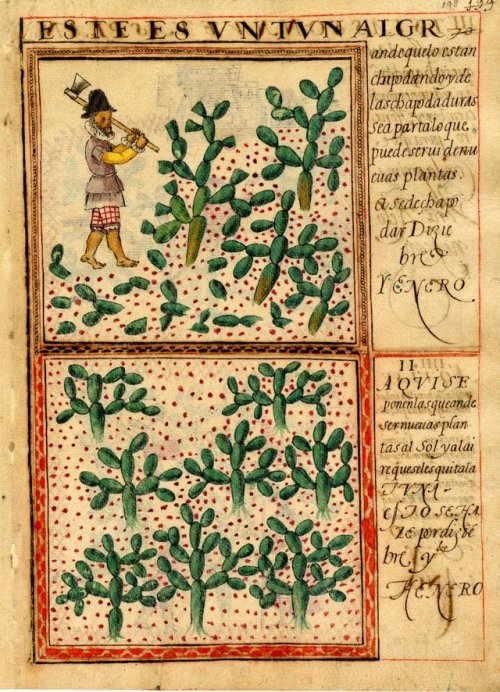 198 199
ESTE ES VN TVNAL GR
ande que lo estan
chapodando y de
las chapodaduras
se aparta lo que
puede seruir de nu
euas plantas.
a se de chapo
dar Dizie
bre y
HENERO
II
AQVI SE
ponen las que an de
ser nueuas plan
tas al Sol y al ai
re que se les quita la
TVNA
ESTO SE HA
ze por dizie
bre, y
HENERO